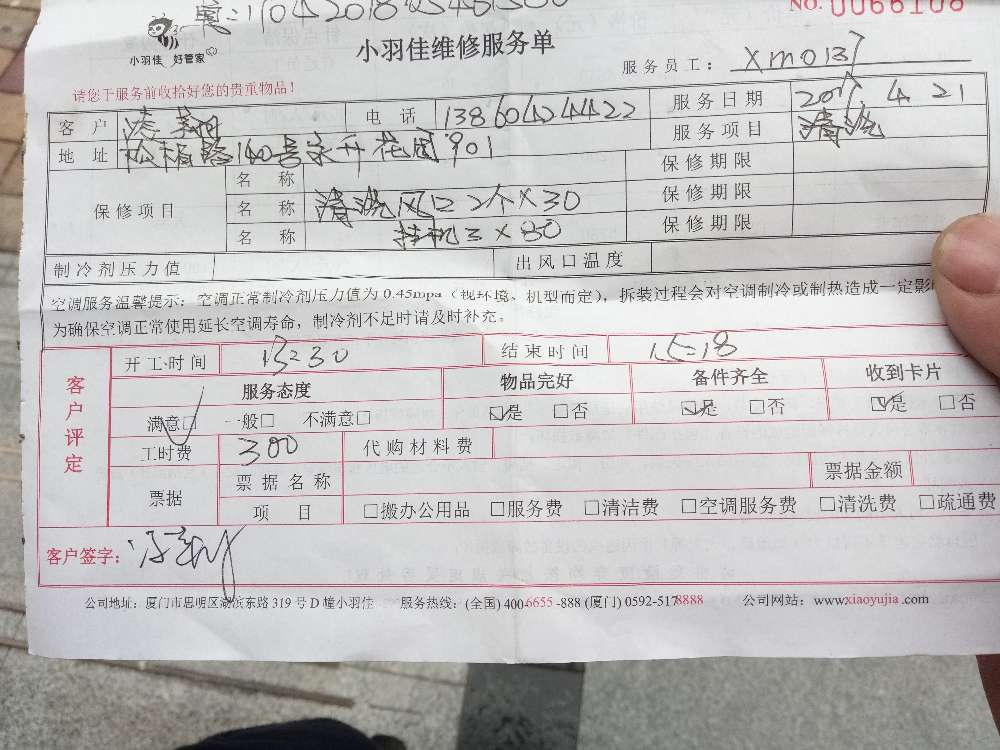 NO. 0066108
小羽佳 好管家
小羽佳维修服务单
服务员工： XM0137
请您于服务前收拾好您的贵重物品！
客户 电话 13860424422 服务日期 4 21
地址 140号 花园901 服务项目 清洗
保修项目 名称 保修期限
名称 清洗风口2个X30 保修期限
名称 挂机3X80 保修期限
制冷剂压力值 出风口温度
空调服务温馨提示：空调正常制冷剂压力值为 0.45mpa（视环境、机型而定），拆装过程会对空调制冷或制热造成一定影
为确保空调正常使用延长空调寿命，制冷剂不足时请及时补充。
客户评定
开工时间 13:30 结束时间 15:18
服务态度 物品完好 备件齐全 收到卡片
满意□ 一般□ 不满意□ ☑是 □否 ☑是 □否 ☑是 □否
工时费 300 代购材料费
票据 票据名称 票据金额
项目 □搬办公用品 □服务费 □清洁费 □空调服务费 □清洗费 □疏通费
客户签字：
公司地址：厦门市思明区湖滨东路 319 号 D 幢小羽佳 服务热线：(全国) 400-6655-888 (厦门) 0592-5178888 公司网站：www.xiaoyujia.com